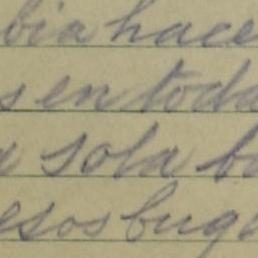 bia hace
s en toda
a sola b
esos buq